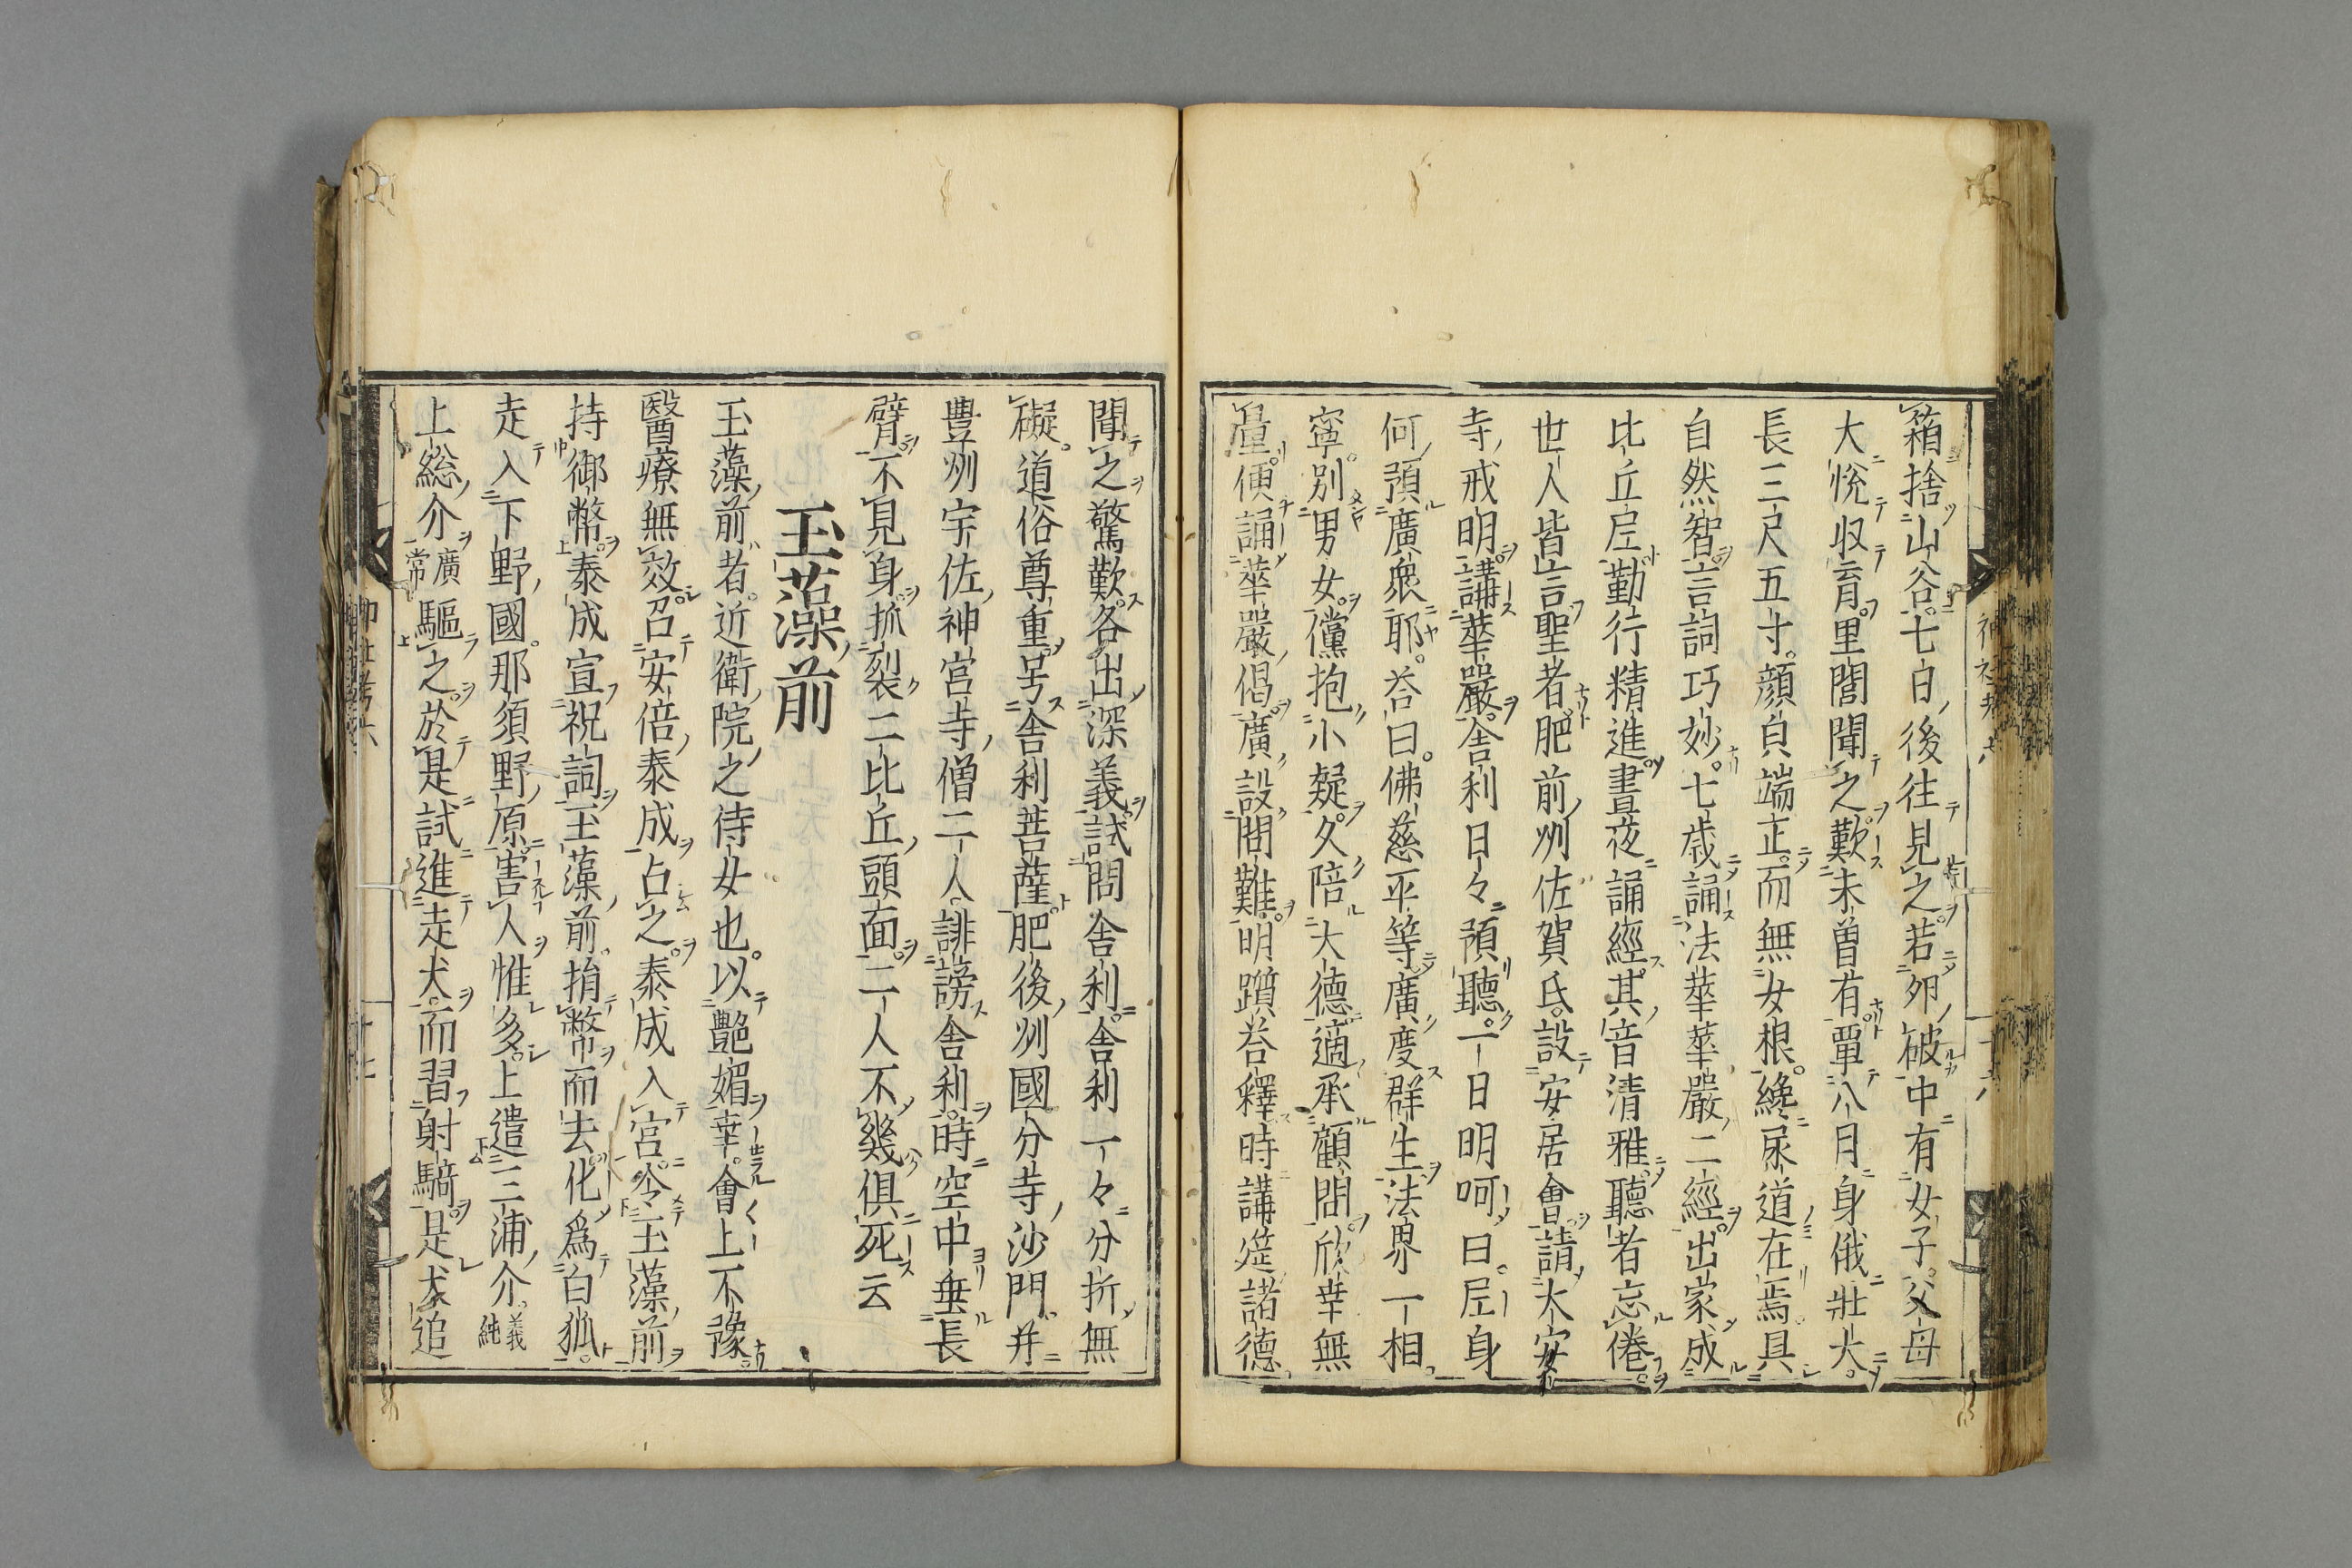 箱捨山谷。七日後往見之。若夘破中有女子。父母
大悅收育。里閭聞之歎未曾有。單八月身俄壯大。
長三尺五寸。顏皃端正。而無女根。纔尿道在焉。具
自然智。言詞巧妙。七歲誦法華華嚴二經。出家成
比丘尼。勤行精進。晝夜誦經。其音清雅。聽者忘倦。
世人皆言聖者。肥前州佐賀氏。設安居會。請大安
寺戒明講華嚴。舍利日々預聽。一日明呵曰。尼身
何預廣衆耶。荅曰。佛慈平等廣度群生。法界一相。
寧別男女。儻抱小疑。久陪大德。適承顧問。欣幸無
量。便誦華嚴偈。廣設問難。明躓荅釋。時講筵諸德。
聞之驚歎。各出深義試問舍利。舍利一々分折無
礙。道俗尊重。号舍利菩薩。肥後州國分寺沙門。并
豊州宇佐神宮寺僧二人。誹謗舍利。時空中垂長
臂。不見身。抓裂二比丘頭面。二人不幾俱死云
玉藻前
玉藻前者。近衛院之待女也。以艶媚幸。會上不豫
醫療無效。召安倍泰成占之。泰成入宮。令玉藻前
持御幣。泰成宣祝詞。玉藻前捐幣而去。化爲白狐。
走入下野國。那須野原。害人惟多。上遣三浦介義純
上総介廣常驅之。於是試進走犬。而習射騎。是犬追
神社考六
十七